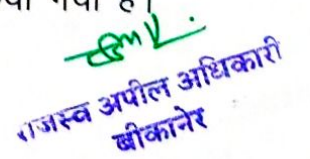 गया है।
राजस्व अपील अधिकारी
बीकानेर